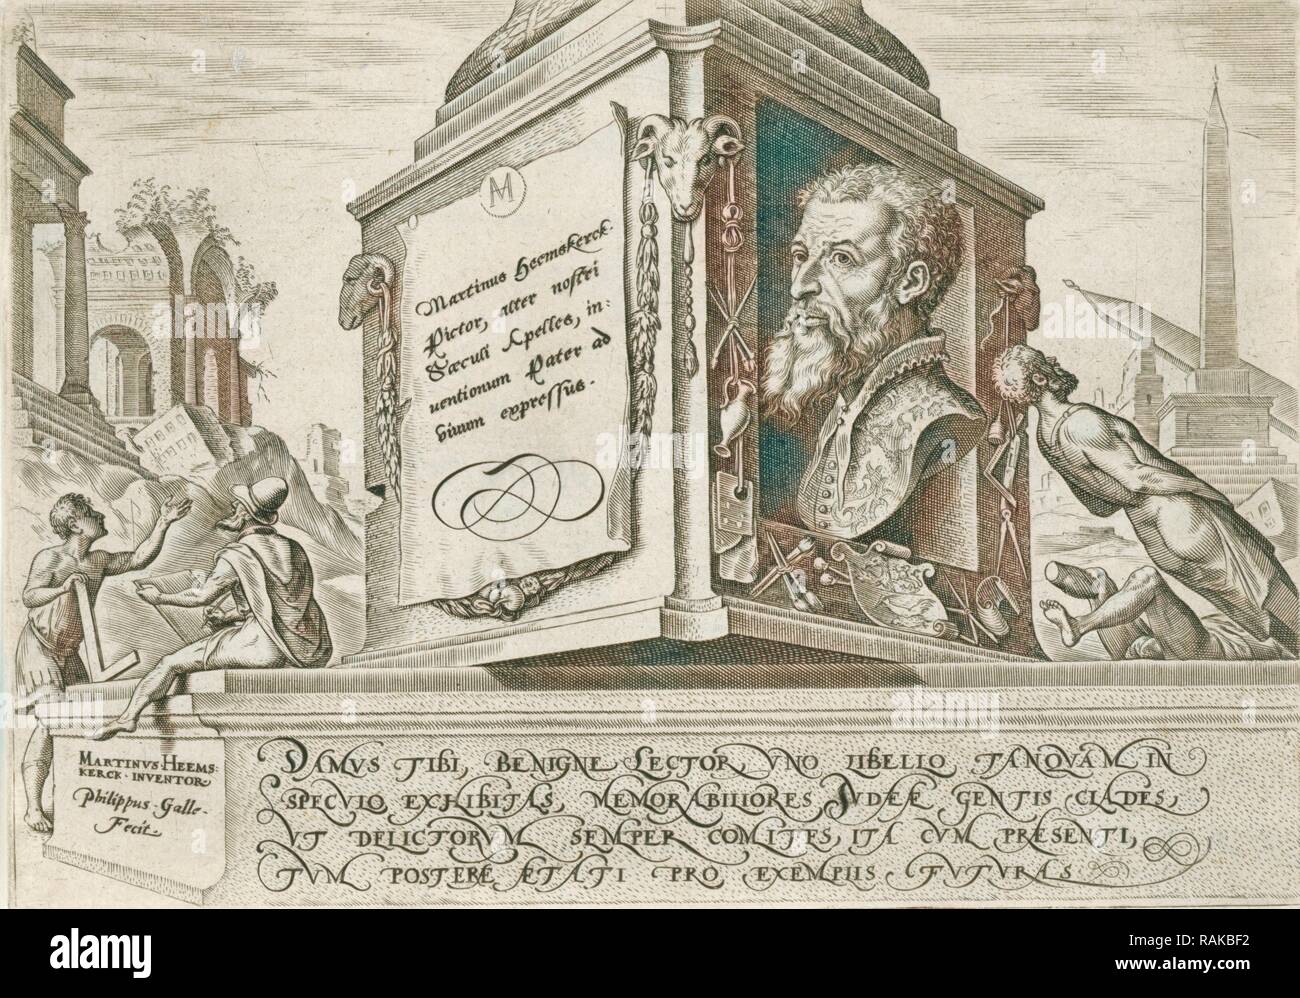 M
Martinus Heemskerck.
Pictor, alter nostri
Sæculi Apelles, in:
uentionum Pater ad
viuum expressus.
MARTINVS HEEMS:
KERCK · INVENTOR
Philippus Galle.
Fecit
DAMVS TIBI, BENIGNE LECTOR, VNO LIBELLO TANQVAM IN
SPECVLO EXHIBITAS, MEMORABILIORES IVDEÆ GENTIS CLADES,
VT DELICTORVM SEMPER COMITES, ITA CVM PRÆSENTI,
TVM POSTERÆ ÆTATI PRO EXEMPLIS FVTVRAS
a
alamy
Image ID: RAKBF2
www.alamy.com